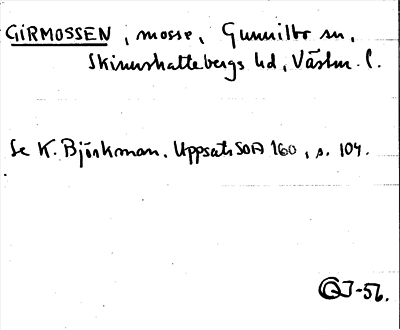 GIRMOSSEN, mosse, Gunnilbo sn,
Skinnskattebergs hd, Västm. l.
Se K. Björkman. Uppsats SOA 160, s. 104.
GJ-56.